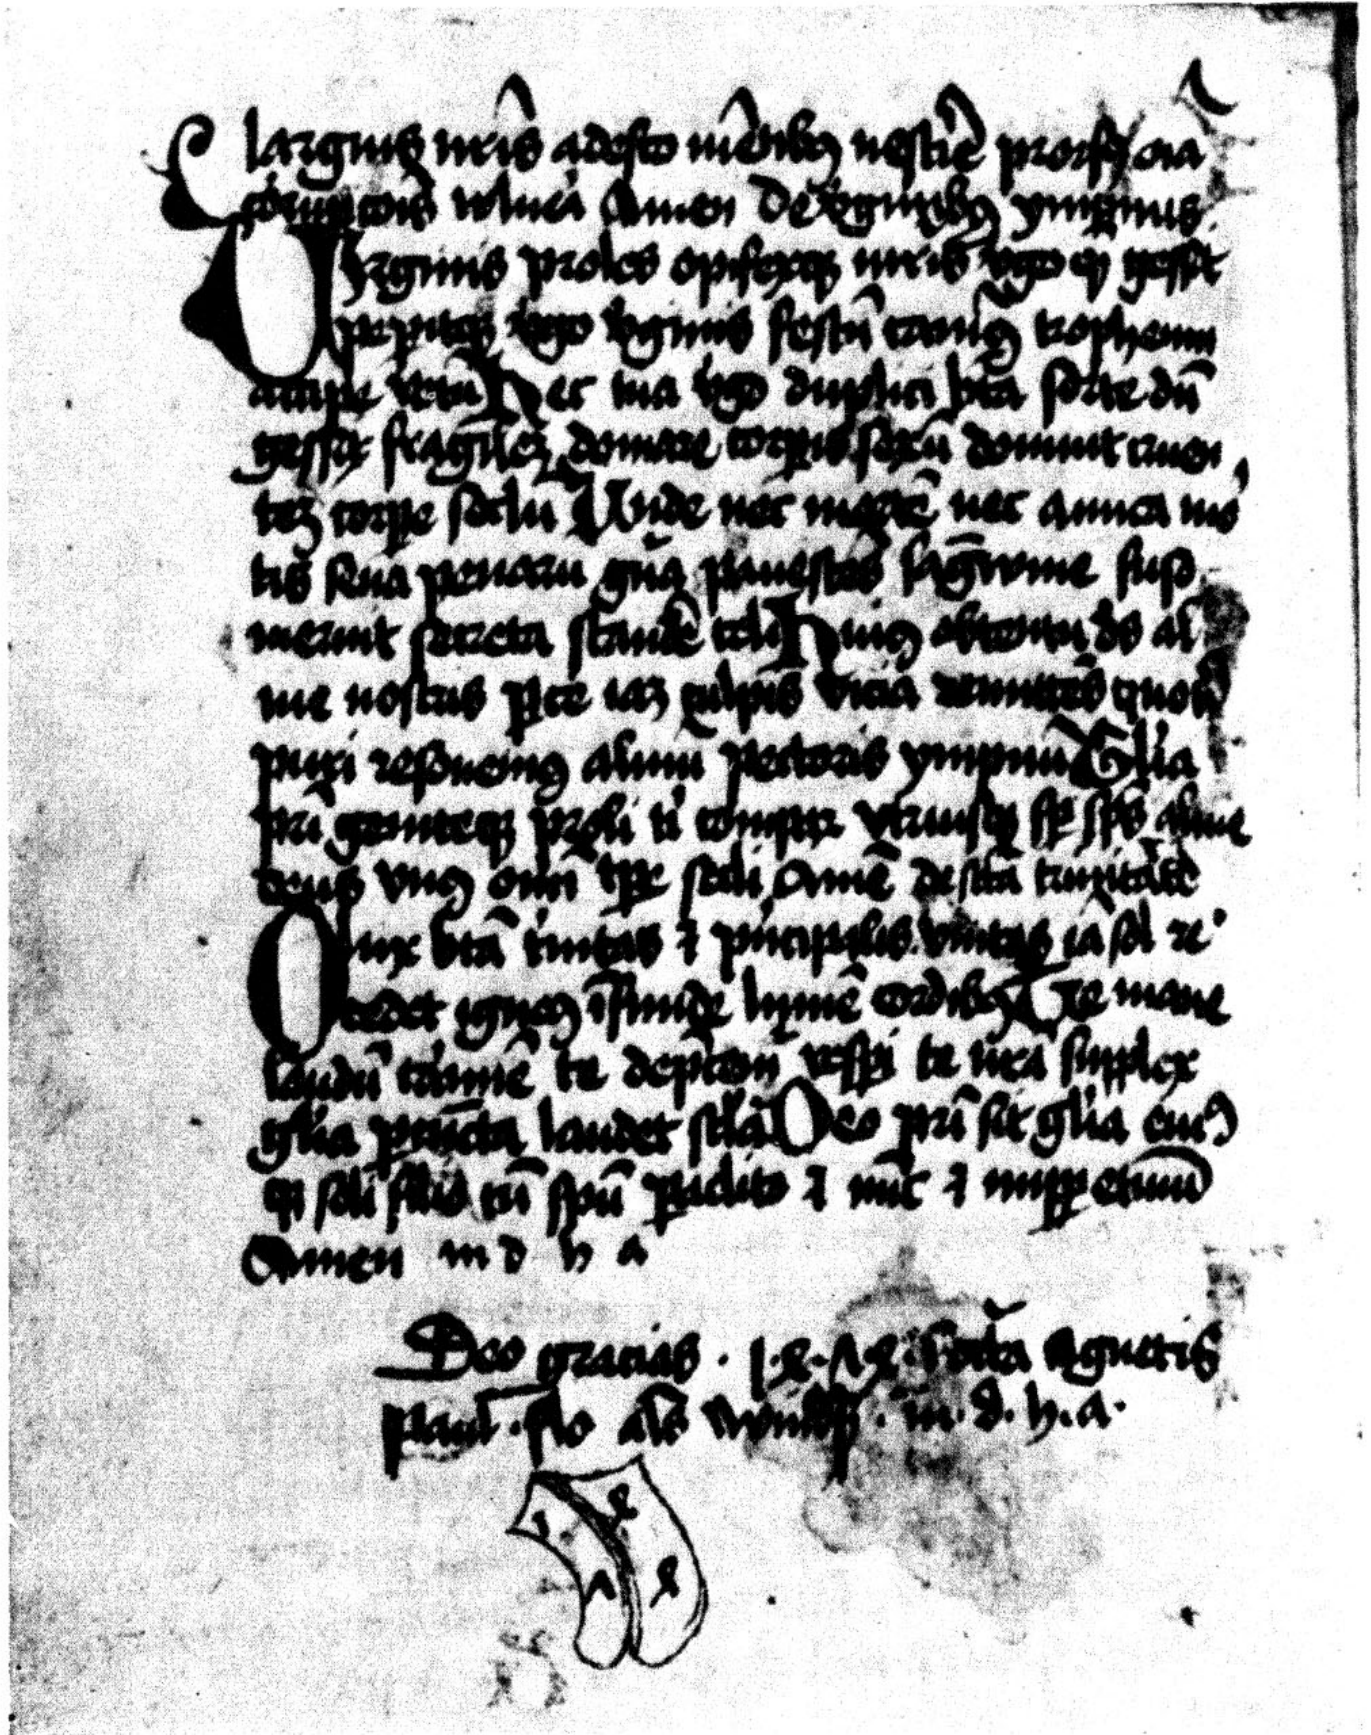 largius nr̄is adesto mētibꝫ nesciē prorsꝫ oīa
corrupcōis vulnera Amen De virginibꝫ ympnus
Virginis proles opifexqꝫ mr̄is v̓go qʒ gessit
peperitqꝫ v̓go v̓ginis festū canimꝰ tropheum
accipe votū Hec tua v̓go duplici bt̄a sorte dū
gessit fragilem domare corporis sexū domuit cruen
tū corpe sclm̄ Unde nec mortē nec amica mor
tis seua penarū gn̄a pauescēs sāgwine fuso
meruit secreta scandē celi Huiꝰ obtentu dš al
me nostris parce iam culpis vicia remittēs quo t̓
puri resonemꝰ almū pectoris ympnū Gl̄ia
pr̄i geniteqꝫ proli t̓ compar vtriusqꝫ sp̄ sp̄s alme
deus vnꝰ omi tp̄e secli Amē de sc̄ta trinitate
O lux bt̄a t̓nitas ⁊ p̓ncipalis vnitas iā sol re
cedet igneꝰ īfunde lumē cordibꝫ Te mane
laudū carmē te dep̄cem vesp̄i te nr̄a supplex
gl̄ia per cūcta laudet sc̄la Deo pr̄i sit gl̄ia eiusqꝫ
qʒ soli filio cū sp̄u paraclito ⁊ nūc ⁊ imppetuū
Amen m d h a
Deo gracias · 1·8·Λ8· octaua Agnetis
m·d·h·a·
1 8
Λ 8